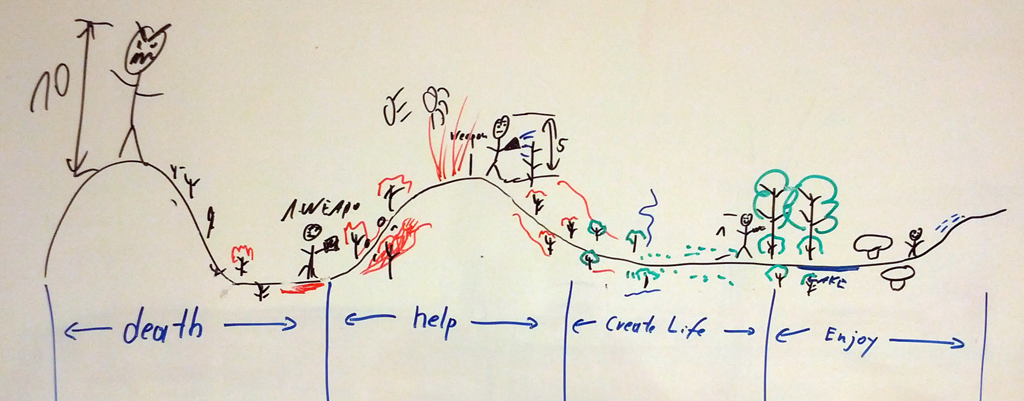 10
1 WEAPO
Weapon
5
1
LAKE
death
help
Create Life
Enjoy